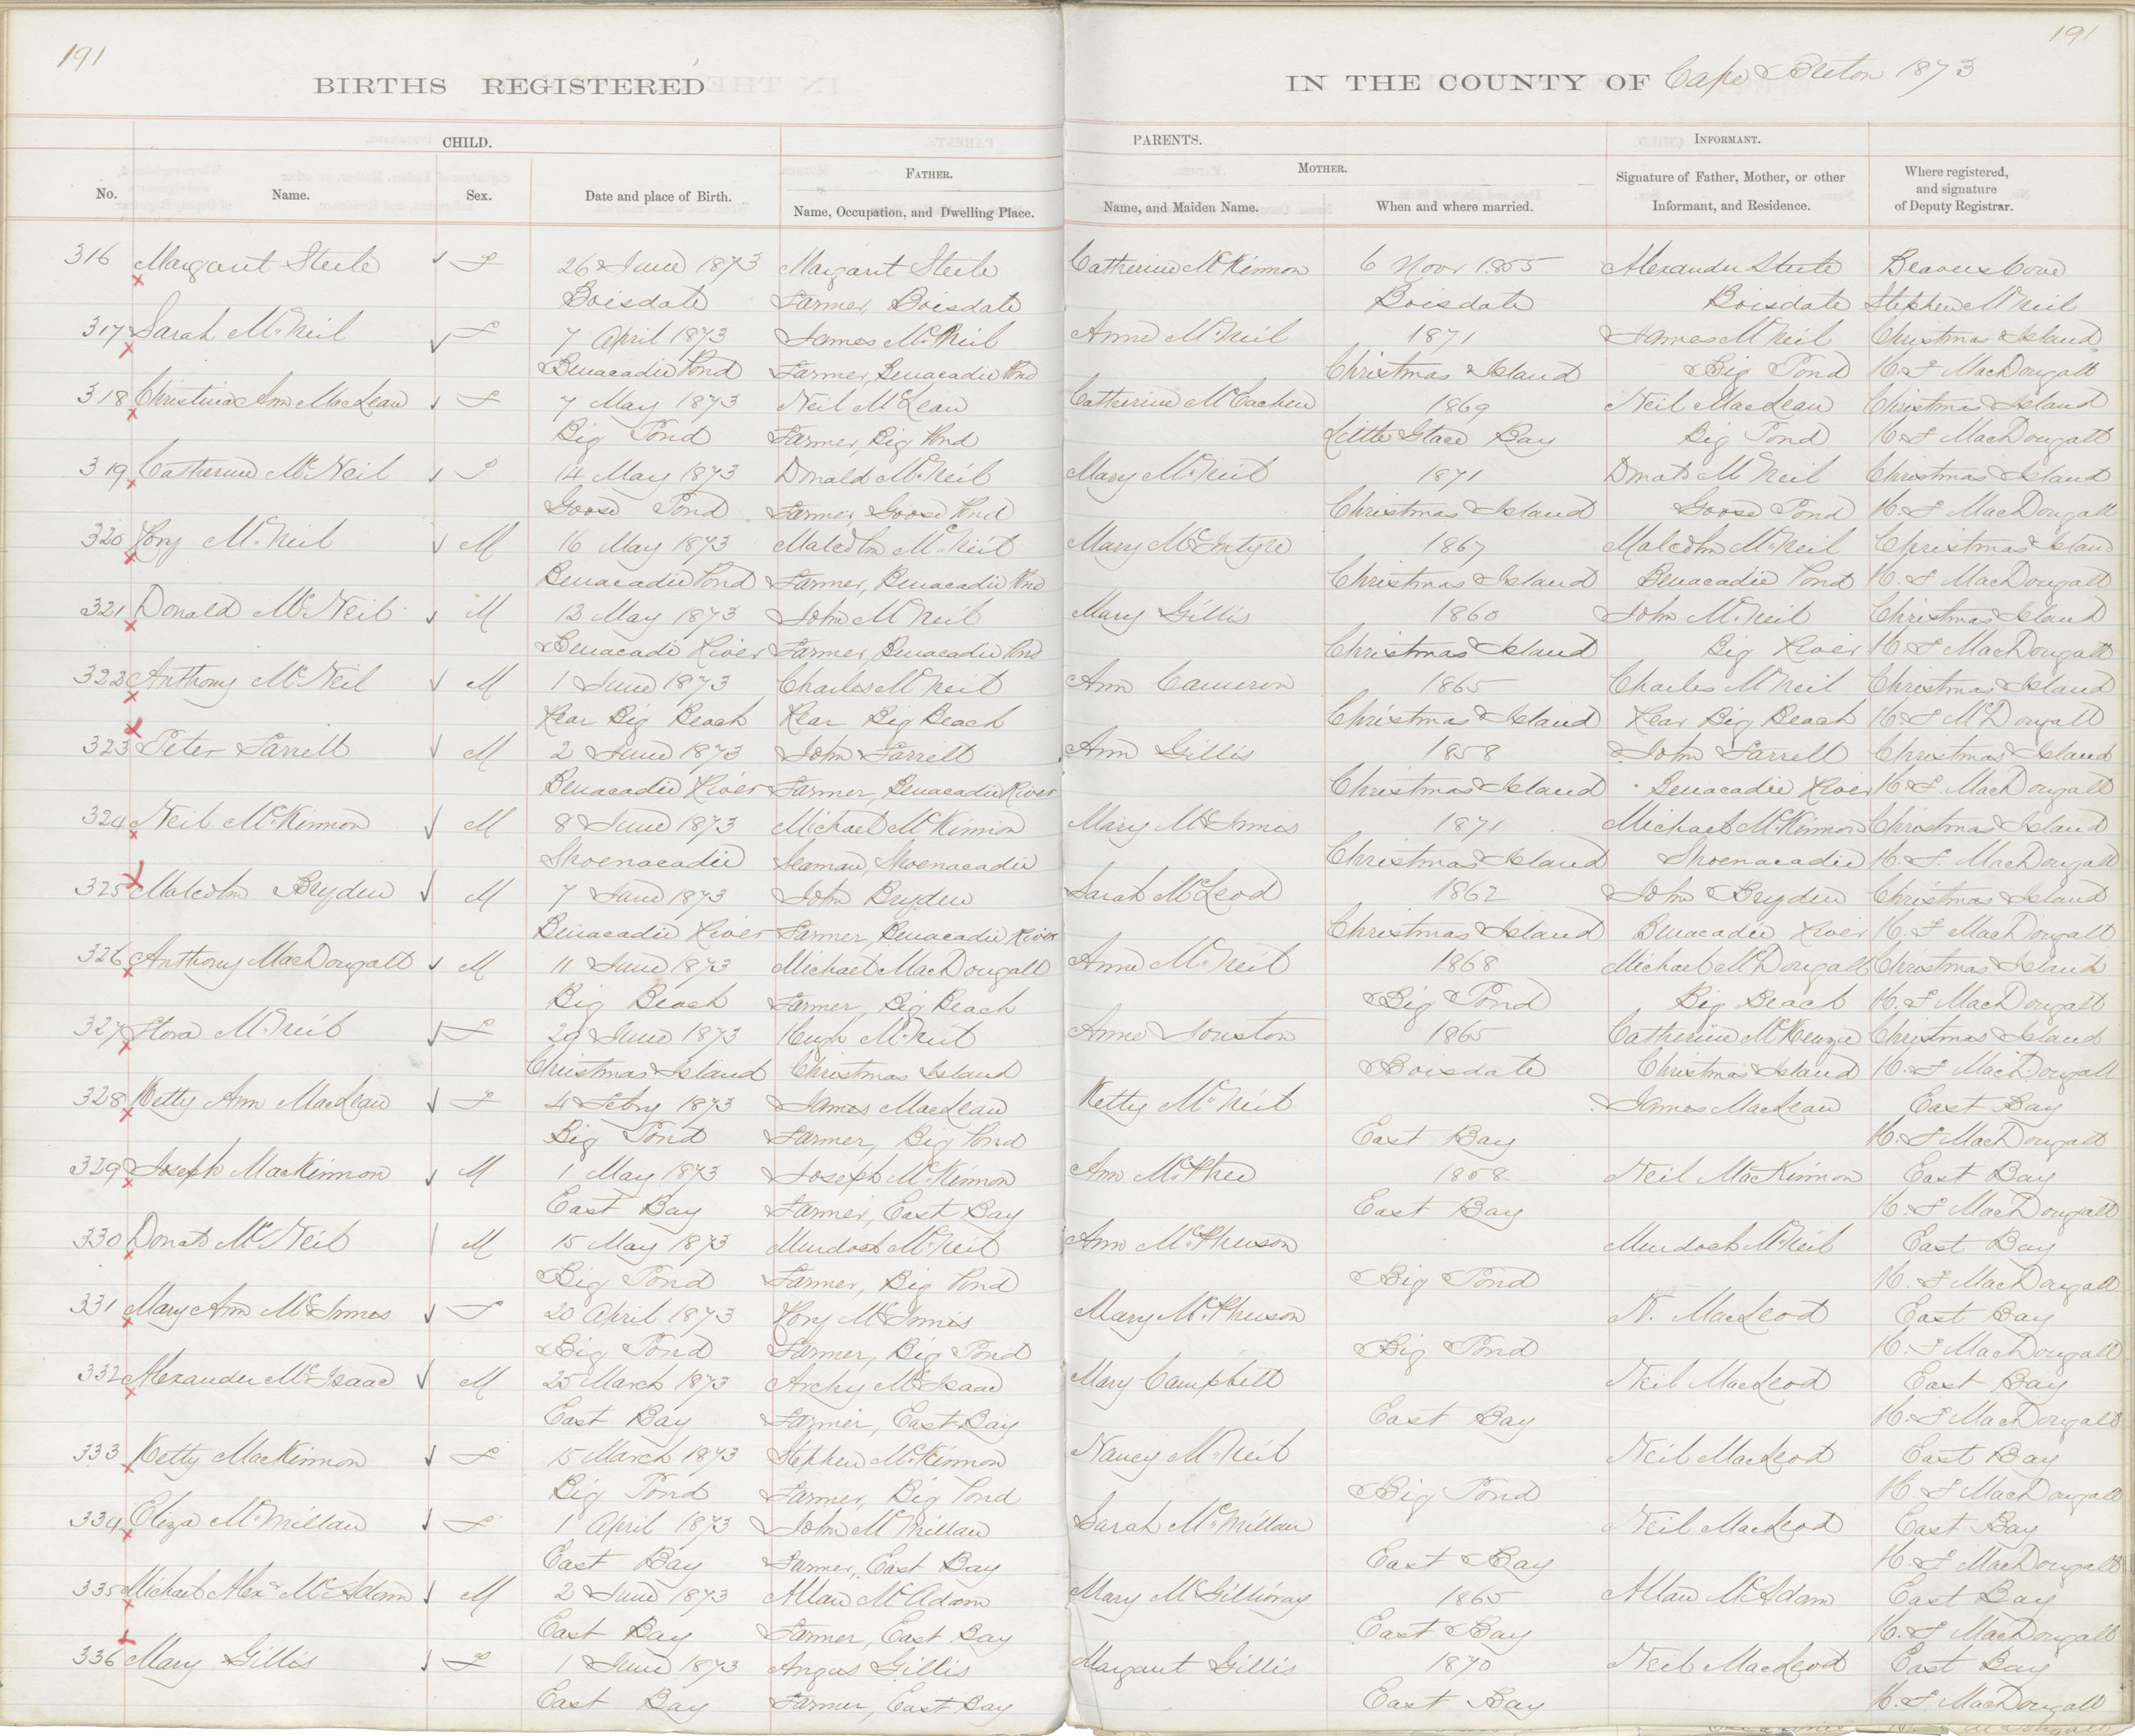 191
191
BIRTHS REGISTERED
IN THE COUNTY OF Cape Breton 1873
CHILD.
PARENTS.
INFORMANT.
FATHER.
MOTHER.
No. Name. Sex. Date and place of Birth. Name, Occupation, and Dwelling Place. Name, and Maiden Name. When and where married. Signature of Father, Mother, or other Informant, and Residence. Where registered, and signature of Deputy Registrar.
316 Margaret Steele F 26 June 1873 Margaret Steele Catherine McKinnon 6 Novr 1855 Alexander Steele Beavers Cove
Boisdale Farmer, Boisdale Boisdale Boisdale Stephen McNeil
317 Sarah McNeil F 7 April 1873 James McNeil Anne McNeil 1871 James McNeil Christmas Island
Benacadie Pond Farmer, Benacadie Pond Christmas Island Big Pond H. F MacDougall
318 Christina Ann MacLean F 7 May 1873 Neil McLean Catherine McEachen 1869 Neil MacLean Christmas Island
Big Pond Farmer, Big Pond Little Glace Bay Big Pond H. F MacDougall
319 Catherine McNeil F 14 May 1873 Donald McNeil Mary McNeil 1871 Donald McNeil Christmas Island
Goose Pond Farmer, Goose Pond Christmas Island Goose Pond H. F MacDougall
320 Rory McNeil M 16 May 1873 Malcolm McNeil Mary McIntyre 1867 Malcolm McNeil Christmas Island
Benacadie Pond Farmer, Benacadie Pond Christmas Island Benacadie Pond H. F MacDougall
321 Donald McNeil M 13 May 1873 John McNeil Mary Gillis 1860 John McNeil Christmas Island
Benacadie River Farmer, Benacadie Pond Christmas Island Big River H. F MacDougall
322 Anthony McNeil M 1 June 1873 Charles McNeil Ann Cameron 1865 Charles McNeil Christmas Island
Rear Big Beach Rear Big Beach Christmas Island Rear Big Beach H. F McDougall
323 Peter Farrell M 2 June 1873 John Farrell Ann Gillis 1858 John Farrell Christmas Island
Benacadie River Farmer, Benacadie River Christmas Island Benacadie River H. F. MacDougall
324 Neil McKinnon M 8 June 1873 Michael McKinnon Mary McInnis 1871 Michael McKinnon Christmas Island
Shoenacadie Seaman, Shoenacadie Christmas Island Shoenacadie H. F. MacDougall
325 Malcolm Bryden M 7 June 1873 John Bryden Sarah McLeod 1862 John Bryden Christmas Island
Benacadie River Farmer, Benacadie River Christmas Island Benacadie River H. F MacDougall
326 Anthony MacDougall M 11 June 1873 Michael MacDougall Anne McNeil 1868 Michael McDougall Christmas Island
Big Beach Farmer, Big Beach Big Pond Big Beach H. F MacDougall
327 Flora McNeil F 29 June 1873 Hugh McNeil Anne Jonston 1865 Catherine McKenzie Christmas Island
Christmas Island Christmas Island Boisdale Christmas Island H. F MacDougall
328 Ketty Ann MacLean F 4 Febry 1873 James MacLean Ketty McNeil James MacLean East Bay
Big Pond Farmer, Big Pond East Bay H. F MacDougall
329 Joseph MacKinnon M 1 May 1873 Joseph McKinnon Ann McPhee 1858 Neil MacKinnon East Bay
East Bay Farmer, East Bay East Bay H. F MacDougall
330 Donald McNeil M 15 May 1873 Murdoch McNeil Ann McPherson Murdoch McNeil East Bay
Big Pond Farmer, Big Pond Big Pond H. F MacDougall
331 Mary Ann McInnes F 20 April 1873 Rory McInnis Mary McPherson N. MacLeod East Bay
Big Pond Farmer, Big Pond Big Pond H. F MacDougall
332 Alexander McIsaac M 25 March 1873 Archy McIsaac Mary Campbell Neil MacLeod East Bay
East Bay Farmer, East Bay East Bay H. F MacDougall
333 Ketty MacKinnon F 15 March 1873 Stephen McKinnon Nancy McNeil Neil MacLeod East Bay
Big Pond Farmer, Big Pond Big Pond H. F MacDougall
334 Eliza McMillan F 1 April 1873 John McMillan Sarah McMillan Neil MacLeod East Bay
East Bay Farmer, East Bay East Bay H. F MacDougall
335 Michael Alexr McAdam M 2 June 1873 Allan McAdam Mary McGillivray 1865 Allan McAdam East Bay
East Bay Farmer, East Bay East Bay H. F MacDougall
336 Mary Gillis F 1 June 1873 Angus Gillis Margaret Gillis 1870 Neil MacLeod East Bay
East Bay Farmer, East Bay East Bay H. F MacDougall